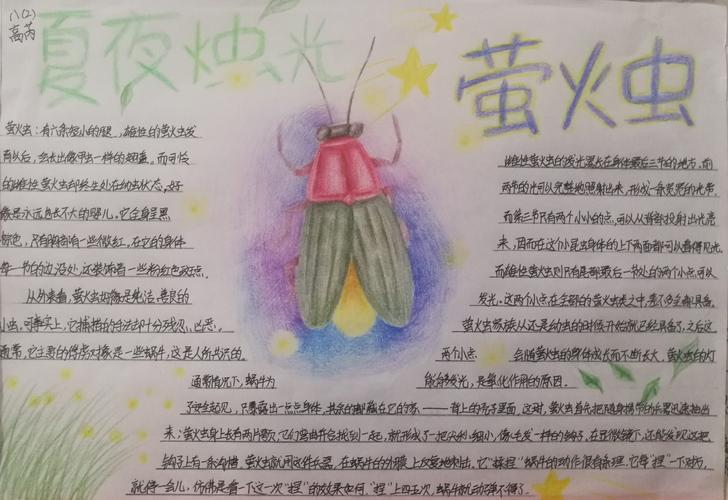 八(2)
高芮
夏夜烛光
萤火虫
萤火虫:有六条短小的腿,雄性的萤火虫发
育以后,会长出像甲虫一样的翅盔。而可怜
的雌性萤火虫却终生处在幼虫状态,好
像是永远也长不大的婴儿。它全身呈黑
棕色,只有胸部有一些微红,在它的身体
每一节的边沿处,还装饰着一些粉红色斑点。
从外表看,萤火虫好像是纯洁、善良的
小虫,可事实上,它捕猎的方法却十分残忍、凶恶。
通常,它主要的俘虏对象是一些蜗牛,这是人所共识的。
雌性萤火虫的发光器长在身体最后三节的地方,前
两节的光可以完整地照射出来,形成一条宽宽的光带,
而第三节只有两个小小的点,可以从背部投射出光亮
来,因而在这个小昆虫身体的上下两面都可以看得见光。
而雄性萤火虫则只有是那最后一节处的两个小点可以
发光。这两个小点在全部的萤火虫类之中,是不多全都具备。
萤火虫家族从还是幼虫的时候开始就已经具备了,之后这
两个小点 会随萤火虫的身体成长而不断长大。萤火虫的灯
能够发光,是氧化作用的原因。
通常情况下,蜗牛为
了安全起见,只要露出一点点身体,其余的都藏在它的家——背上的壳子里面,这时,萤火虫首先把随身携带的兵器迅速抽出
来:萤火虫身上长有两片颚,它们弯曲并合拢到一起,就形成了一把尖利、细小、像毛发一样的钩子,在显微镜下,还能发现这把
钩子上有一条沟槽。萤火虫就用这件兵器,在蜗牛的外膜上反复地刺击。它“揉捏”蜗牛的动作很有条理,它每“捏”一下对方,
就停一会儿,仿佛是看一下这一次“捏”的效果如何,“捏”上四五次,蜗牛就动弹不得了。